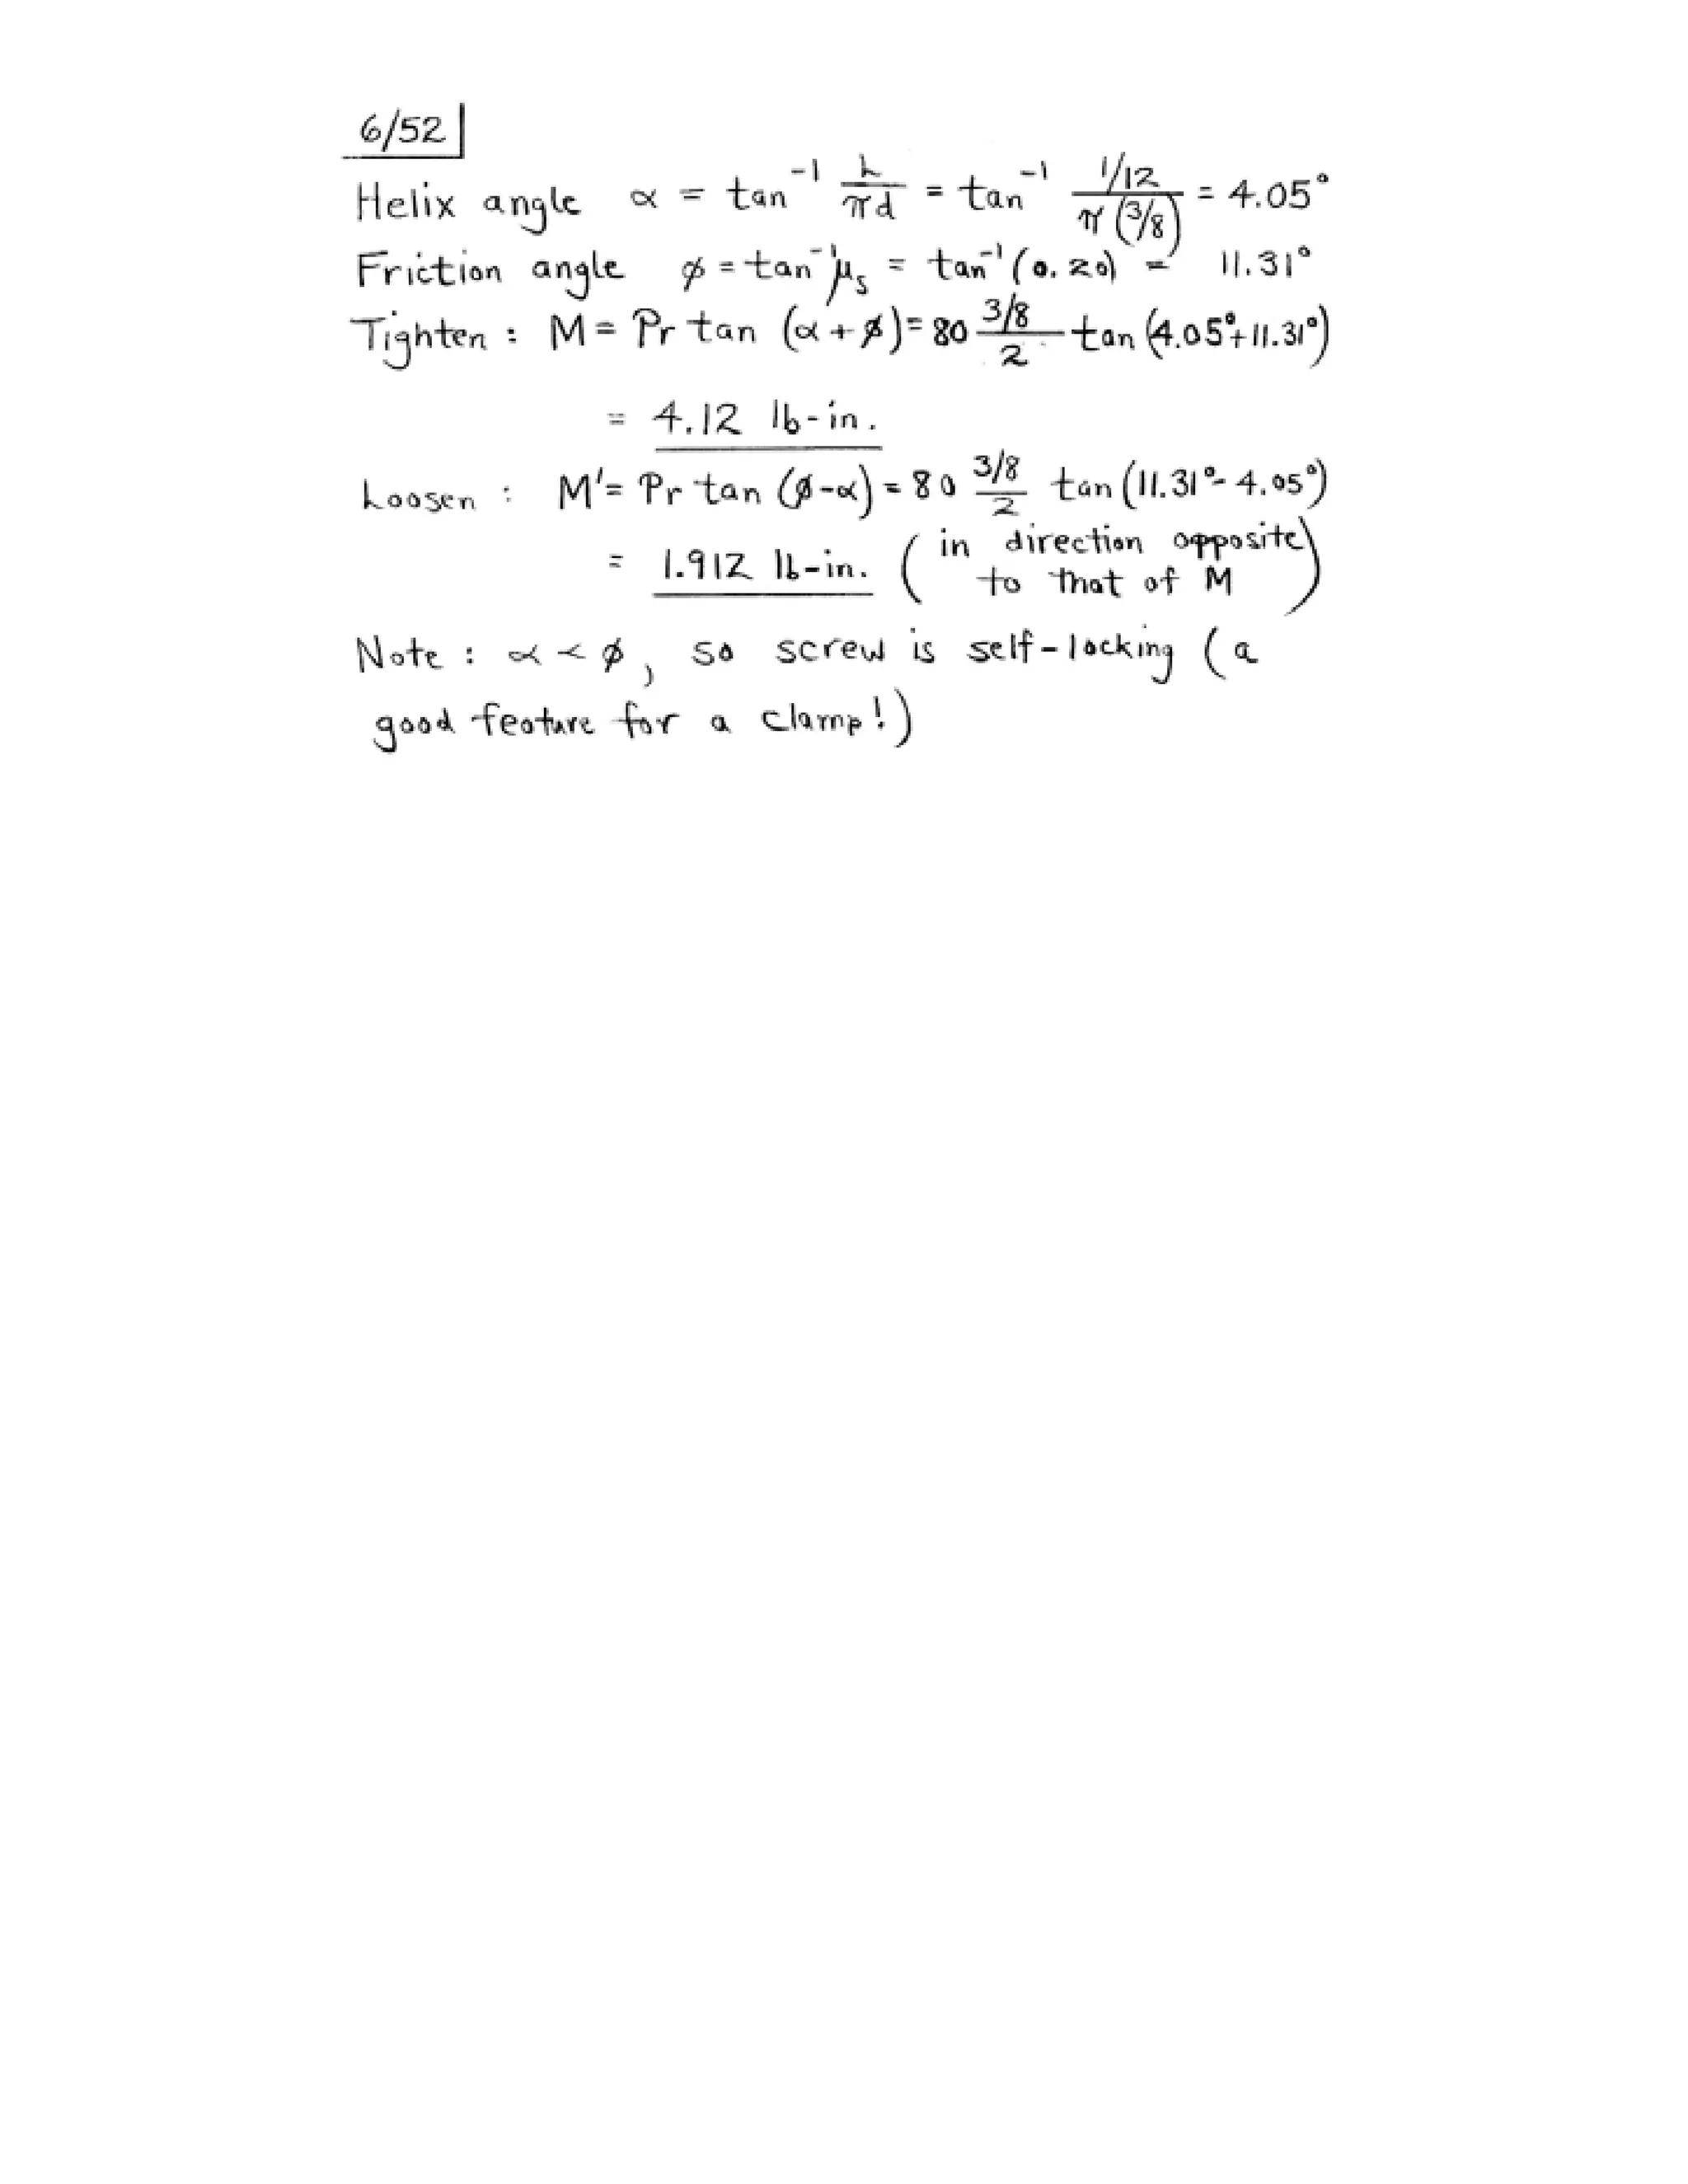 6/52
Helix angle α = tan⁻¹ L/πd = tan⁻¹ (1/12)/(π(3/8)) = 4.05°
Friction angle φ = tan⁻¹ μs = tan⁻¹ (0.20) = 11.31°
Tighten : M = Pr tan (α + φ) = 80 (3/8)/2 tan (4.05° + 11.31°)
= 4.12 lb-in.
Loosen : M' = Pr tan (φ-α) = 80 (3/8)/2 tan (11.31° - 4.05°)
= 1.912 lb-in. (in direction opposite
to that of M)
Note : α < φ, so screw is self-locking (a
good feature for a clamp!)